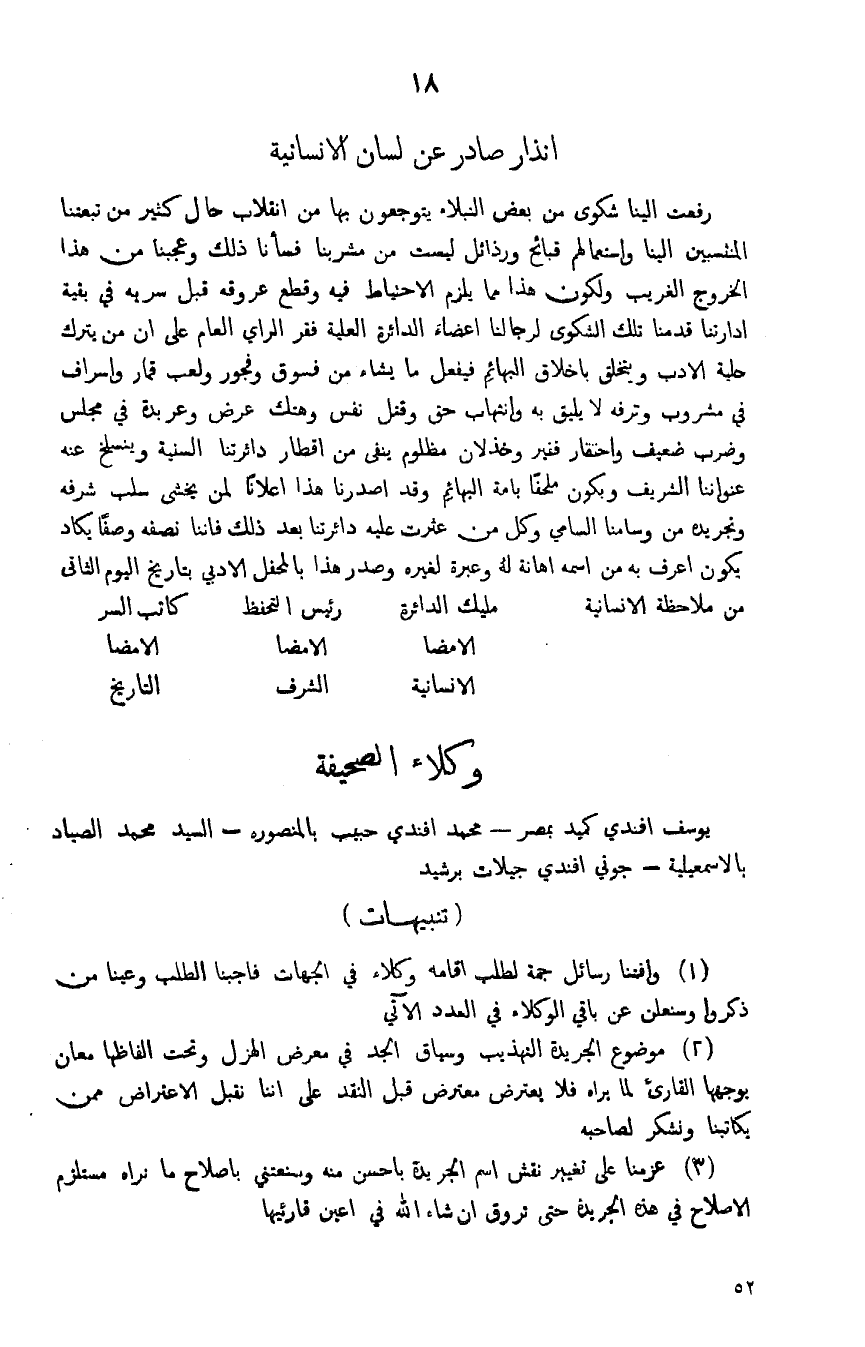 ١٨
انذار صادر عن لسان الانسانية
رفعت الينا شكوى من بعض النبلاء يتوجعون بها من انقلاب حال كثير من تبعتنا
المنتسبين الينا واستعمالهم قبائح ورذائل ليست من مشربنا فسأنا ذلك وعجبنا من هذا
الخروج الغريب ولكون هذا مما يلزم الاحتياط فيه وقطع عروقه قبل سريه في بقية
ادارتنا قدمنا تلك الشكوى لرجالنا اعضاء الدائرة العلية فقر الراي العام على ان من يترك
حلية الادب ويتخلق باخلاق البهائم فيفعل ما يشاء من فسوق وفجور ولعب قمار واسراف
في مشروب وترفه لا يليق به وانتهاب حق وقتل نفس وهتك عرض وعربدة في مجلس
وضرب ضعيف واحتقار فقير وخذلان مظلوم ينفى من اقطار دائرتنا السنية وينسلخ عنه
عنواننا الشريف ويكون ملحقًا بامة البهائم وقد اصدرنا هذا اعلانًا لمن يخشى سلب شرفه
وتجريده من وسامنا السامي وكل من عثرت عليه دائرتنا بعد ذلك فاننا نصفه وصفًا يكاد
يكون اعرف به من اسمه اهانة لهُ وعبرة لغيره وصدر هذا بالمحفل الادبي بتاريخ اليوم الثانى
من ملاحظة الانسانية مليك الدائرة رئيس التحفظ كاتب السر
الامضا الامضا الامضا
الانسانية الشرف التاريخ
وكلاء الصحيفة
يوسف افندي كميد بمصر — محمد افندي حبيب بالمنصوره — السيد محمد الصياد
بالاسمعيلية — جوني افندي جيلات برشيد
( تنبيهات )
(١) وافتنا رسائل جمة لطلب اقامه وكلاء في الجهات فاجبنا الطلب وعينا من
ذكروا وسنعلن عن باقي الوكلاء في العدد الآتي
(٢) موضوع الجريدة التهذيب وسياق الجد في معرض الهزل وتحت الفاظها معان
يوجهها القارئ لما يراه فلا يعترض معترض قبل النقد على اننا نقبل الاعتراض ممن
يكاتبنا ونشكر لصاحبه
(٣) عزمنا على تغيير نقش اسم الجريدة باحسن منه وسنعتني باصلاح ما نراه مستلزم
الاصلاح في هذه الجريدة حتى تروق ان شاء الله في اعين قارئيها
٥٢